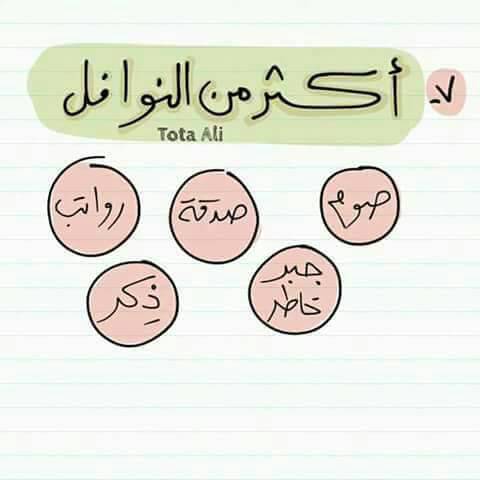 ٧- أكثر من النوافل
Tota Ali
صوم
صدقة
رواتب
جبر
خاطر
ذِكر